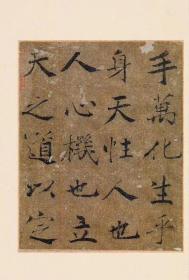 手萬化生乎
身天性人也
人心機也立
天之道以定